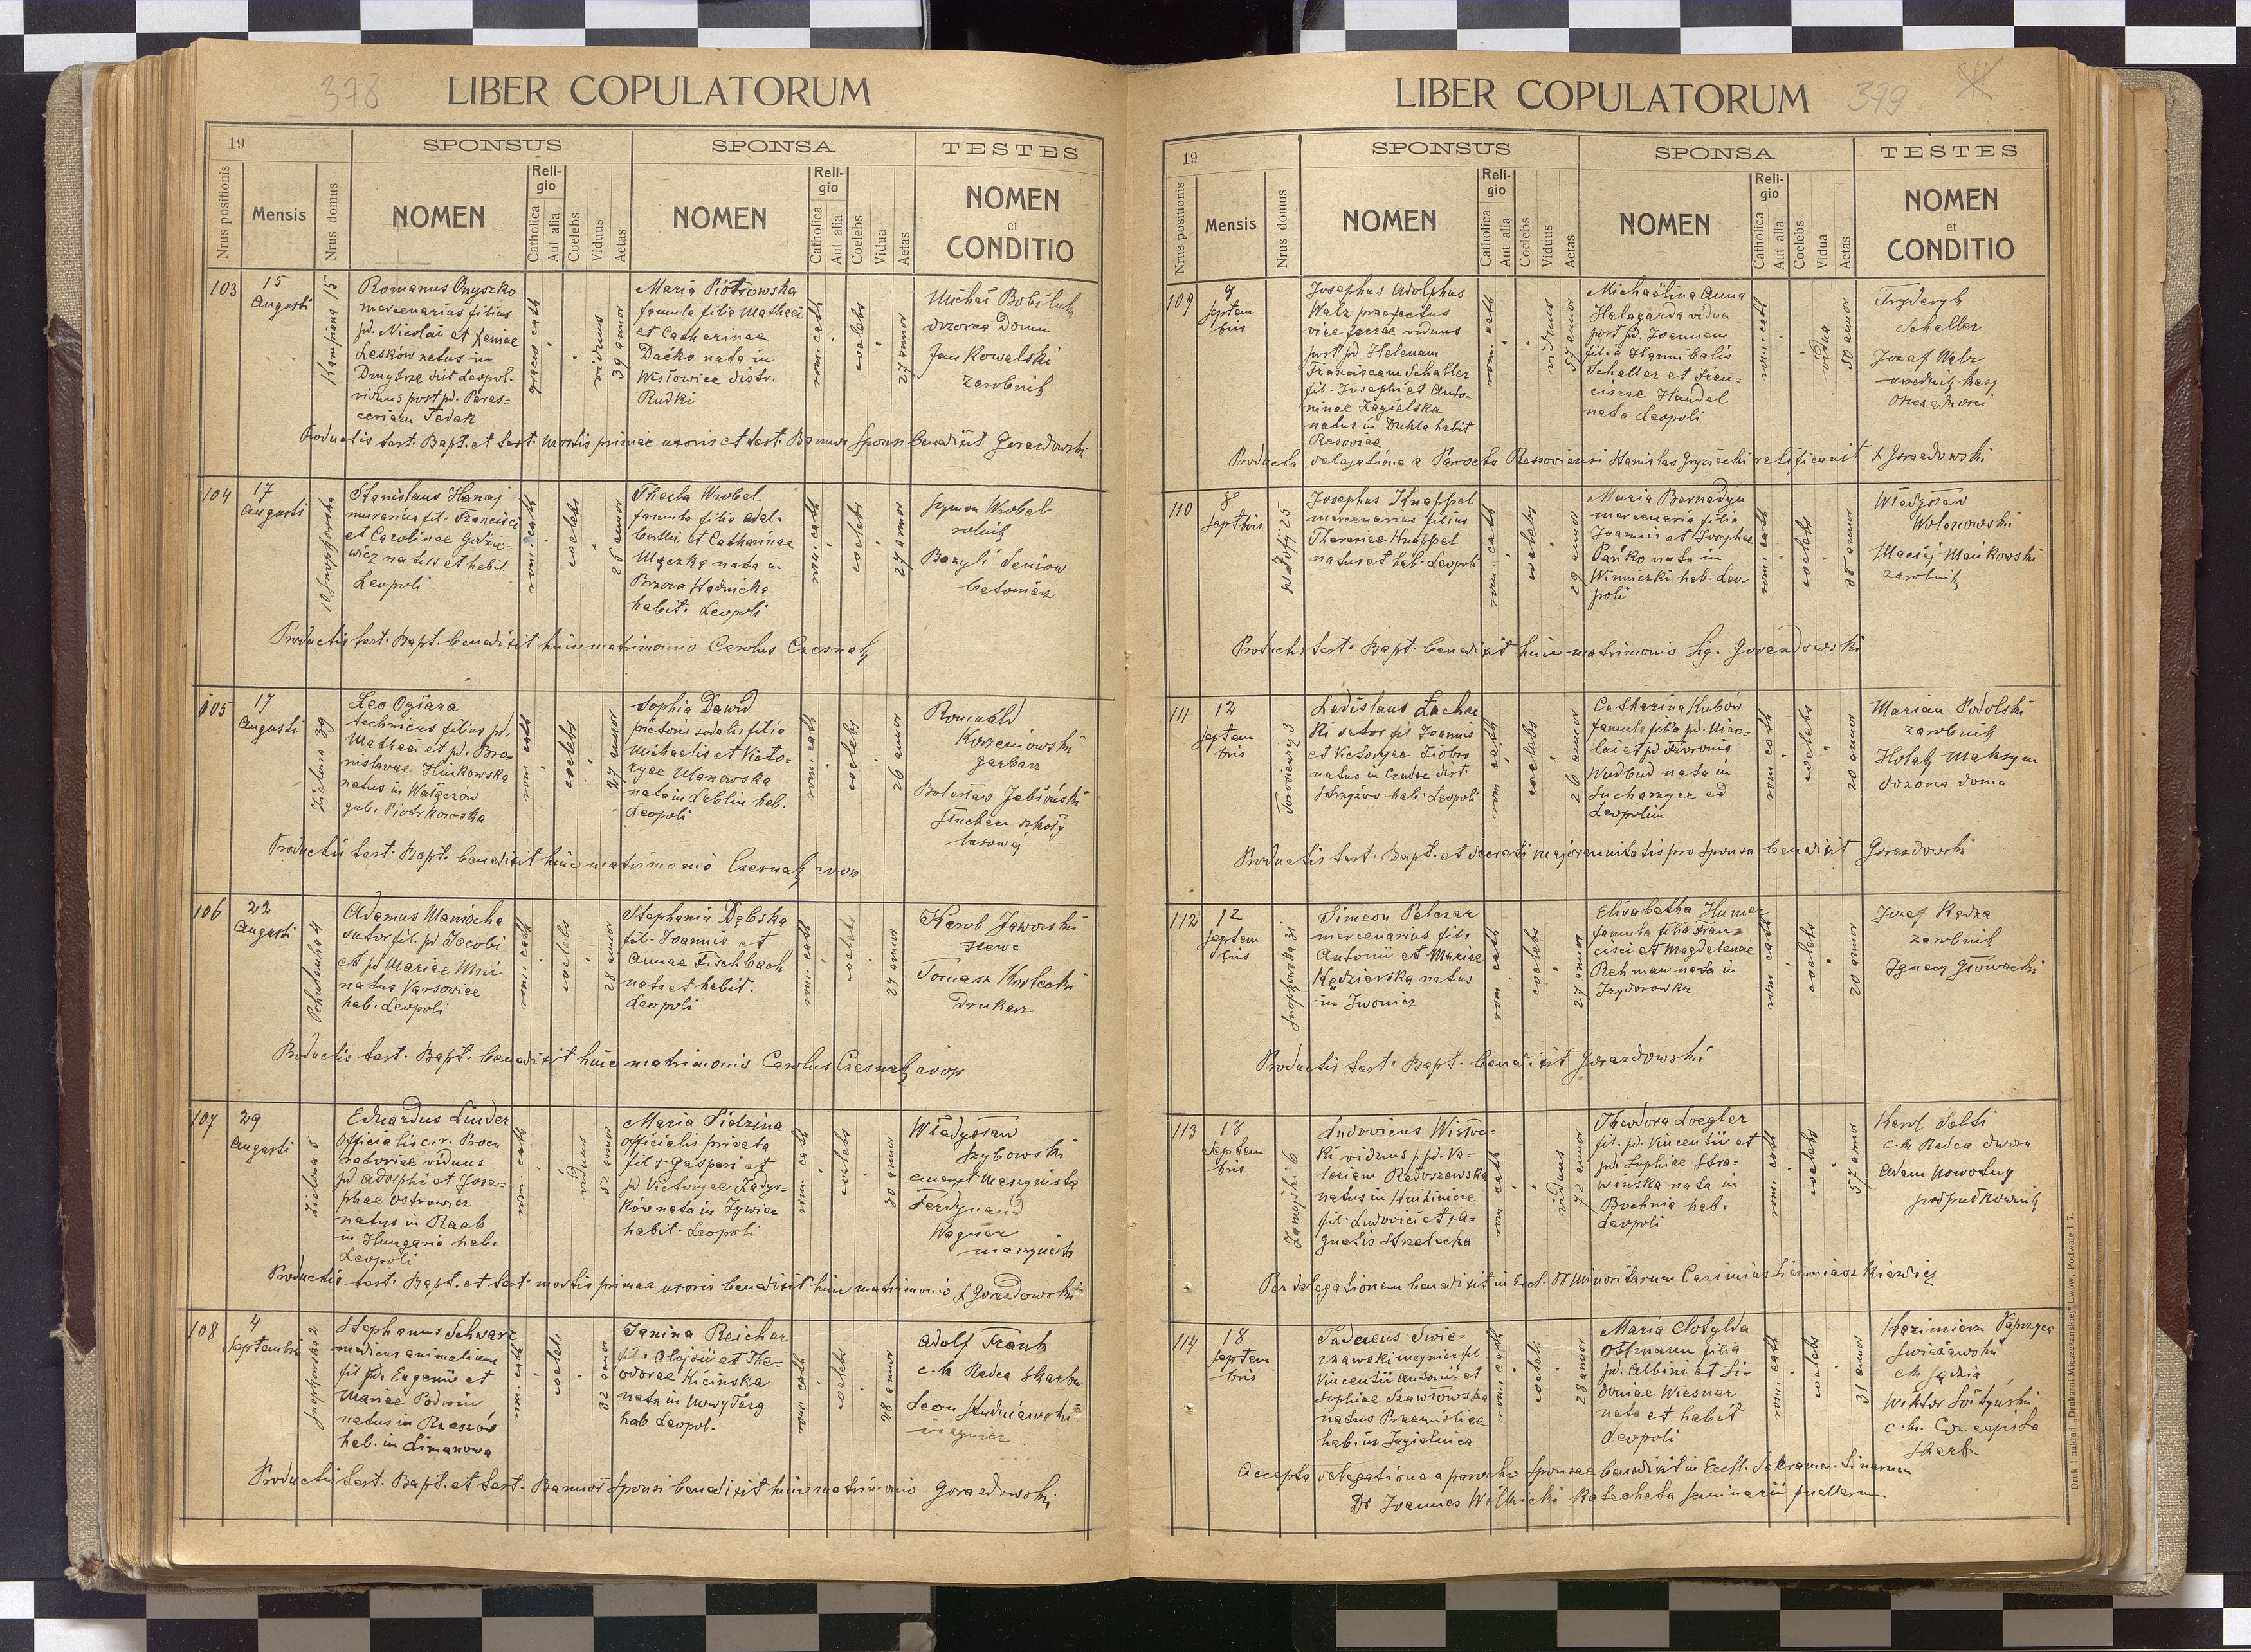 378
LIBER COPULATORUM
19
SPONSUS
SPONSA
TESTES
Nrus positionis
Mensis
Nrus domus
NOMEN
Religio
Catholica
Aut alia
Coelebs
Viduus
Aetas
NOMEN
Religio
Catholica
Aut alia
Coelebs
Vidua
Aetas
NOMEN
et
CONDITIO
103
15
Augusti
Romanus Onyszko
mercenarius filius
pd. Nicolai et Xeniae
Leskow natus in
viduus post pd. Paras=
viduus
39 annor
Maria Piotrowska
famula filia Mathaei
et Catharinae
Daćko nata in
Wistowice distr.
Rudki
rom. cath
coelebs
27 annor
dozorca Domu
Jan Kowalski
zarobnik
Productis test. Bapt. et test. mortis primae uxoris et test. Bannor Sponsi benedixit Gorazdowski
104
17
Augusti
Stanislaus Hanaj
murarius fil. Francisci
et Carolinae
natus et habit
Leopoli
coelebs
25 annor
Thecla Wrobel
famula filia Adal-
berthi et Catharinae
Mączka nata in
Brzoza Stadnicka
habit. Leopoli
coelebs
Szymon Wrobel
rolnik
Bazyli Seniow
betoniarz
Productis test. Bapt. benedixit huic matrimonio Carolus Czesnak
105
17
Augusti
Zielona 39
Leo Ogiara
technicus filius pd.
Mathaei et pd. Bro-
nislavae Hinkowska
natus in
gub. Piotrkowska
coelebs
27 annor
Sophia Dawid
pictoris sodalis filia
Michaelis et Victo-
ryae Ulanowska
nata in Lublin hab.
Leopoli
coelebs
26 annor
Romuald
Korzeniowski
garbarz
Bolesław Jabłoński
Słuchacz szkoły
lasowej
Productis test. Bapt. benedixit huic matrimonio Czesnak coop
106
22
Augusti
Pohulanka 4
Adamus Maniocha
sutor fil. pd Jacobi
et pd Mariae
natus Varsoviae
hab. Leopoli
coelebs
28 annor
Stephania Dębska
fil. Joannis et
Annae Fischbach
nata et habit.
Leopoli
coelebs
24 annor
Karol Jaworski
szewc
Tomasz Kostecki
Drukarz
Productis test. Bapt. benedixit huic matrimonio Carolus Czesnak coop
107
29
Augusti
Zielona 5
Eduardus Linder
Officialis c. r. Procu
ratoriae viduus
pd Adolphi et Jose-
phae Ostrowicz
natus in Raab
in Hungaria hab.
Leopoli
viduus
52 annor
Maria Pidzina
officialis privata
fil + Gaspari et
pd Victoryae Zadyr-
ków nata in Żywiec
habit. Leopoli
coelebs
30 annor
Władysław
Szybowski
emeryt Maszynista
Ferdynand
Wagner
maszynista
Productis test. Bapt. et test. mortis primae uxoris benedixit huic matrimonio X Gorazdowski
108
4
Septembris
Stephanus Schwarz
medicus animalium
fil pd. Eugenii et
Mariae Podwin
natus in Rzeszów
hab. in Limanowa
coelebs
32 annor
Janina Reicher
fil. Aloysii et The-
odorae Kicinska
nata in Nowy Targ
hab Leopol.
coelebs
28 annor
Adolf Frank
c. k Radca Skarbu
Leon Studniewski
inżynier
Productis test. Bapt. et test. Bannor Sponsi benedixit huic matrimonio Gorazdowski
LIBER COPULATORUM
379
19
SPONSUS
SPONSA
TESTES
Nrus positionis
Mensis
Nrus domus
NOMEN
Religio
Catholica
Aut alia
Coelebs
Viduus
Aetas
NOMEN
Religio
Catholica
Aut alia
Coelebs
Vidua
Aetas
NOMEN
et
CONDITIO
109
9
Septem
bris
Josephus Adolphus
Walz praefectus
viae ferrae viduus
post pd Helenam
Franciscam Schaller
fil. Josephi et Anto-
ninae Zagielska
natus in Dukla habit
Resoviae
rom. cath
viduus
57 annor
Michaëlina Anna
Halagarda vidua
post pd. Joannem
filia Hannibalis
Schaller et Fran-
ciscae Haudel
nata Leopoli
rom. cath
vidua
50 annor
Fryderyk
Schaller
Jozef Walz
urzednik kasy
Oszczędności
Producta delegatione a Parocho Ressoviensi Stanislao Gryziecki ratificavit X Gorazdowski
110
8
Septbris
Josephus Knappel
mercenarius filius
Theresiae Knappel
natus et hab. Leopoli
coelebs
29 annor
Maria Bernadyn
mercenaria filia
Joannis et Josephae
Pańko nata in
Winniczki hab. Leo-
poli
coelebs
35 annor
Władysław
Wolanowski
Maciej Mańkowski
zarobnik
Productis test. Bapt. benedixit huic matrimonio Sig. Gorazdowski
111
12
Septem
bris
Torosiewicz 3
Ladislaus Zachar
ki sutor fil Joannis
et Victoryae Ziobro
natus in Czudec dist.
Strzyżow hab. Leopoli
coelebs
26 annor
Catharina Kubów
famula filia pd. Nico-
lai et pd Fevronis
Wudbud nata in
Sucharzyce ad
Leopolim
coelebs
20 annor
Marian Podolski
zarobnik
Hołak Maksym
dozorca domu
Productis test. Bapt. et decreti majorennitatis pro Sponsa benedixit Gorazdowski
112
12
Septem
bris
Simeon Pelczar
mercenarius fil.
Antonii et Mariae
Kędzierska natus
in Iwonicz
coelebs
27 annor
Elisabetha Humer
famula filia Fran-
cisci et Magdalenae
Rehman nata in
Izydorowka
coelebs
20 annor
Jozef Kędza
zarobnik
Ignacy Głowacki
Productis test. Bapt. benedixit Gorazdowski
113
18
Septem
bris
Zamojski 6
Ludovicus Wisłoc-
ki viduus p pd. Va-
leriam Radoszewska
natus in
fil. Ludovici et + A-
gnetis Strzelecka
viduus
72 annor
Theodora Loegler
fil. pd. Vincentii et
pd. Sophiae Stra-
winska nata in
Bochnia hab.
Leopoli
coelebs
57 annor
Karol Salti
c. k Radca dworu
Adam Nowotny
podpułkownik
Per delegationem benedixit in Eccl. PP Minoritarum Casimirus Siemiaszkiewicz
114
18
Septem
bris
Tadaeus Swie-
zawski inzynier fil
Vincentii Antonii et
Sophiae Szawłowska
natus Przemisliae
hab. in Jagielnica
coelebs
28 annor
Maria Clotylda
Ottmann filia
pd. Albini et Si-
doniae Wiesner
nata et habit
Leopoli
coelebs
31 annor
Kazimierz Paprzyca
Swieżawski
ck sędzia
Wiktor Sołtyński
c. k. Concepista
Skarbu
Accepta delegatione a parocho Sponsae benedixit in Eccl. Sakramentinarum
Dr Joannes Wilkicki Katecheta seminarii puellarum
Druk i nakład „Drukarni Mieszczańskiej" Lwów, Podwale l. 7.